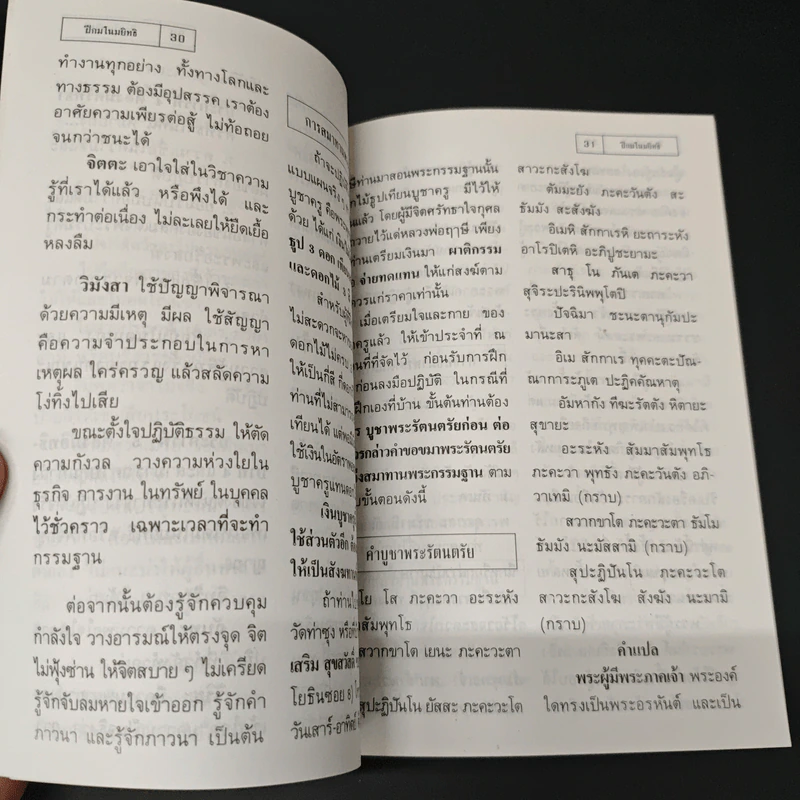 ปกิณมโนมยิทธิ 30
ทำงานทุกอย่าง ทั้งทางโลกและ
ทางธรรม ต้องมีอุปสรรค เราต้อง
อาศัยความเพียรต่อสู้ ไม่ท้อถอย
จนกว่าชนะได้
จิตตะ เอาใจใส่ในวิชาความ
รู้ที่เราได้แล้ว หรือพึงได้ และ
กระทำต่อเนื่อง ไม่ละเลยให้ยืดเยื้อ
หลงลืม
วิมังสา ใช้ปัญญาพิจารณา
ด้วยความมีเหตุ มีผล ใช้สัญญา
คือความจำประกอบในการหา
เหตุผล ใคร่ครวญ แล้วสลัดความ
โง่ทิ้งไปเสีย
ขณะตั้งใจปฏิบัติธรรม ให้ตัด
ความกังวล วางความห่วงใยใน
ธุรกิจ การงาน ในทรัพย์ ในบุคคล
ไว้ชั่วคราว เฉพาะเวลาที่จะทำ
กรรมฐาน
ต่อจากนั้นต้องรู้จักควบคุม
กำลังใจ วางอารมณ์ให้ตรงจุด จิต
ไม่ฟุ้งซ่าน ให้จิตสบาย ๆ ไม่เครียด
รู้จักจับลมหายใจเข้าออก รู้จักคำ
ภาวนา และรู้จักภาวนา เป็นต้น
การสมาทาน
ถ้าจะปฏิบัติ
แบบแผนจริง
บูชาครู คือ
ด้วย ได้แก่
ธูป 3 ดอก
และดอกไม้ 3
สำหรับผู้
ไม่สะดวกจะหา
ดอกไม้ไม่ครบ
ให้เป็นกี่สี ก็
ท่านที่ไม่สามารถ
เทียนได้ แต่
ใช้เงินในอัตรา
บูชาครูแทนดอก
เงินบูชาครู
ใช้ส่วนตัวอีก
ให้เป็นสังฆทาน
ถ้าท่าน
วัดท่าซุง หรือ
เสริม สุขสวัสดิ์
โยธินซอย 8)
วันเสาร์-อาทิตย์
31 ปกิณมโนมยิทธิ
ท่านมาสอนพระกรรมฐานนั้น
ไม้ธูปเทียนบูชาครู มีไว้ให้
แล้ว โดยผู้มีจิตศรัทธาใจกุศล
วายไว้แด่หลวงพ่อฤๅษี เพียง
ท่านเตรียมเงินมา ผาติกรรม
จ่ายทดแทน ให้แก่สงฆ์ตาม
ควรแก่ราคาเท่านั้น
เมื่อเตรียมใจและกาย ของ
ครูแล้ว ให้เข้าประจำที่ ณ
ที่ที่จัดไว้ ก่อนรับการฝึก
ก่อนลงมือปฏิบัติ ในกรณีที่
ฝึกเองที่บ้าน ขั้นต้นท่านต้อง
บูชาพระรัตนตรัยก่อน ต่อ
กล่าวคำขอขมาพระรัตนตรัย
สมาทานพระกรรมฐาน ตาม
ขั้นตอนดังนี้
คำบูชาพระรัตนตรัย
โย โส ภะคะวา อะระหัง
สัมพุทโธ
สวากขาโต เยนะ ภะคะวะตา
สุปะฏิปันโน ยัสสะ ภะคะวะโต
สาวะกะสังโฆ
ตัมมะยัง ภะคะวันตัง สะ
ธัมมัง สะสังฆัง
อิเมหิ สักกาเรหิ ยะถาระหัง
อาโรปิเตหิ อะภิปูชะยามะ
สาธุ โน ภันเต ภะคะวา
สุจิระปะรินิพพุโตปิ
ปัจฉิมา ชะนะตานุกัมปะ
มานะสา
อิเม สักกาเร ทุคคะตะปัณ-
ณาการะภูเต ปะฏิคคัณหาตุ
อัมหากัง ทีฆะรัตตัง หิตายะ
สุขายะ
อะระหัง สัมมาสัมพุทโธ
ภะคะวา พุทธัง ภะคะวันตัง อภิ-
วาเทมิ (กราบ)
สวากขาโต ภะคะวะตา ธัมโม
ธัมมัง นะมัสสามิ (กราบ)
สุปะฏิปันโน ภะคะวะโต
สาวะกะสังโฆ สังฆัง นะมามิ
(กราบ)
คำแปล
พระผู้มีพระภาคเจ้า พระองค์
ใดทรงเป็นพระอรหันต์ และเป็น